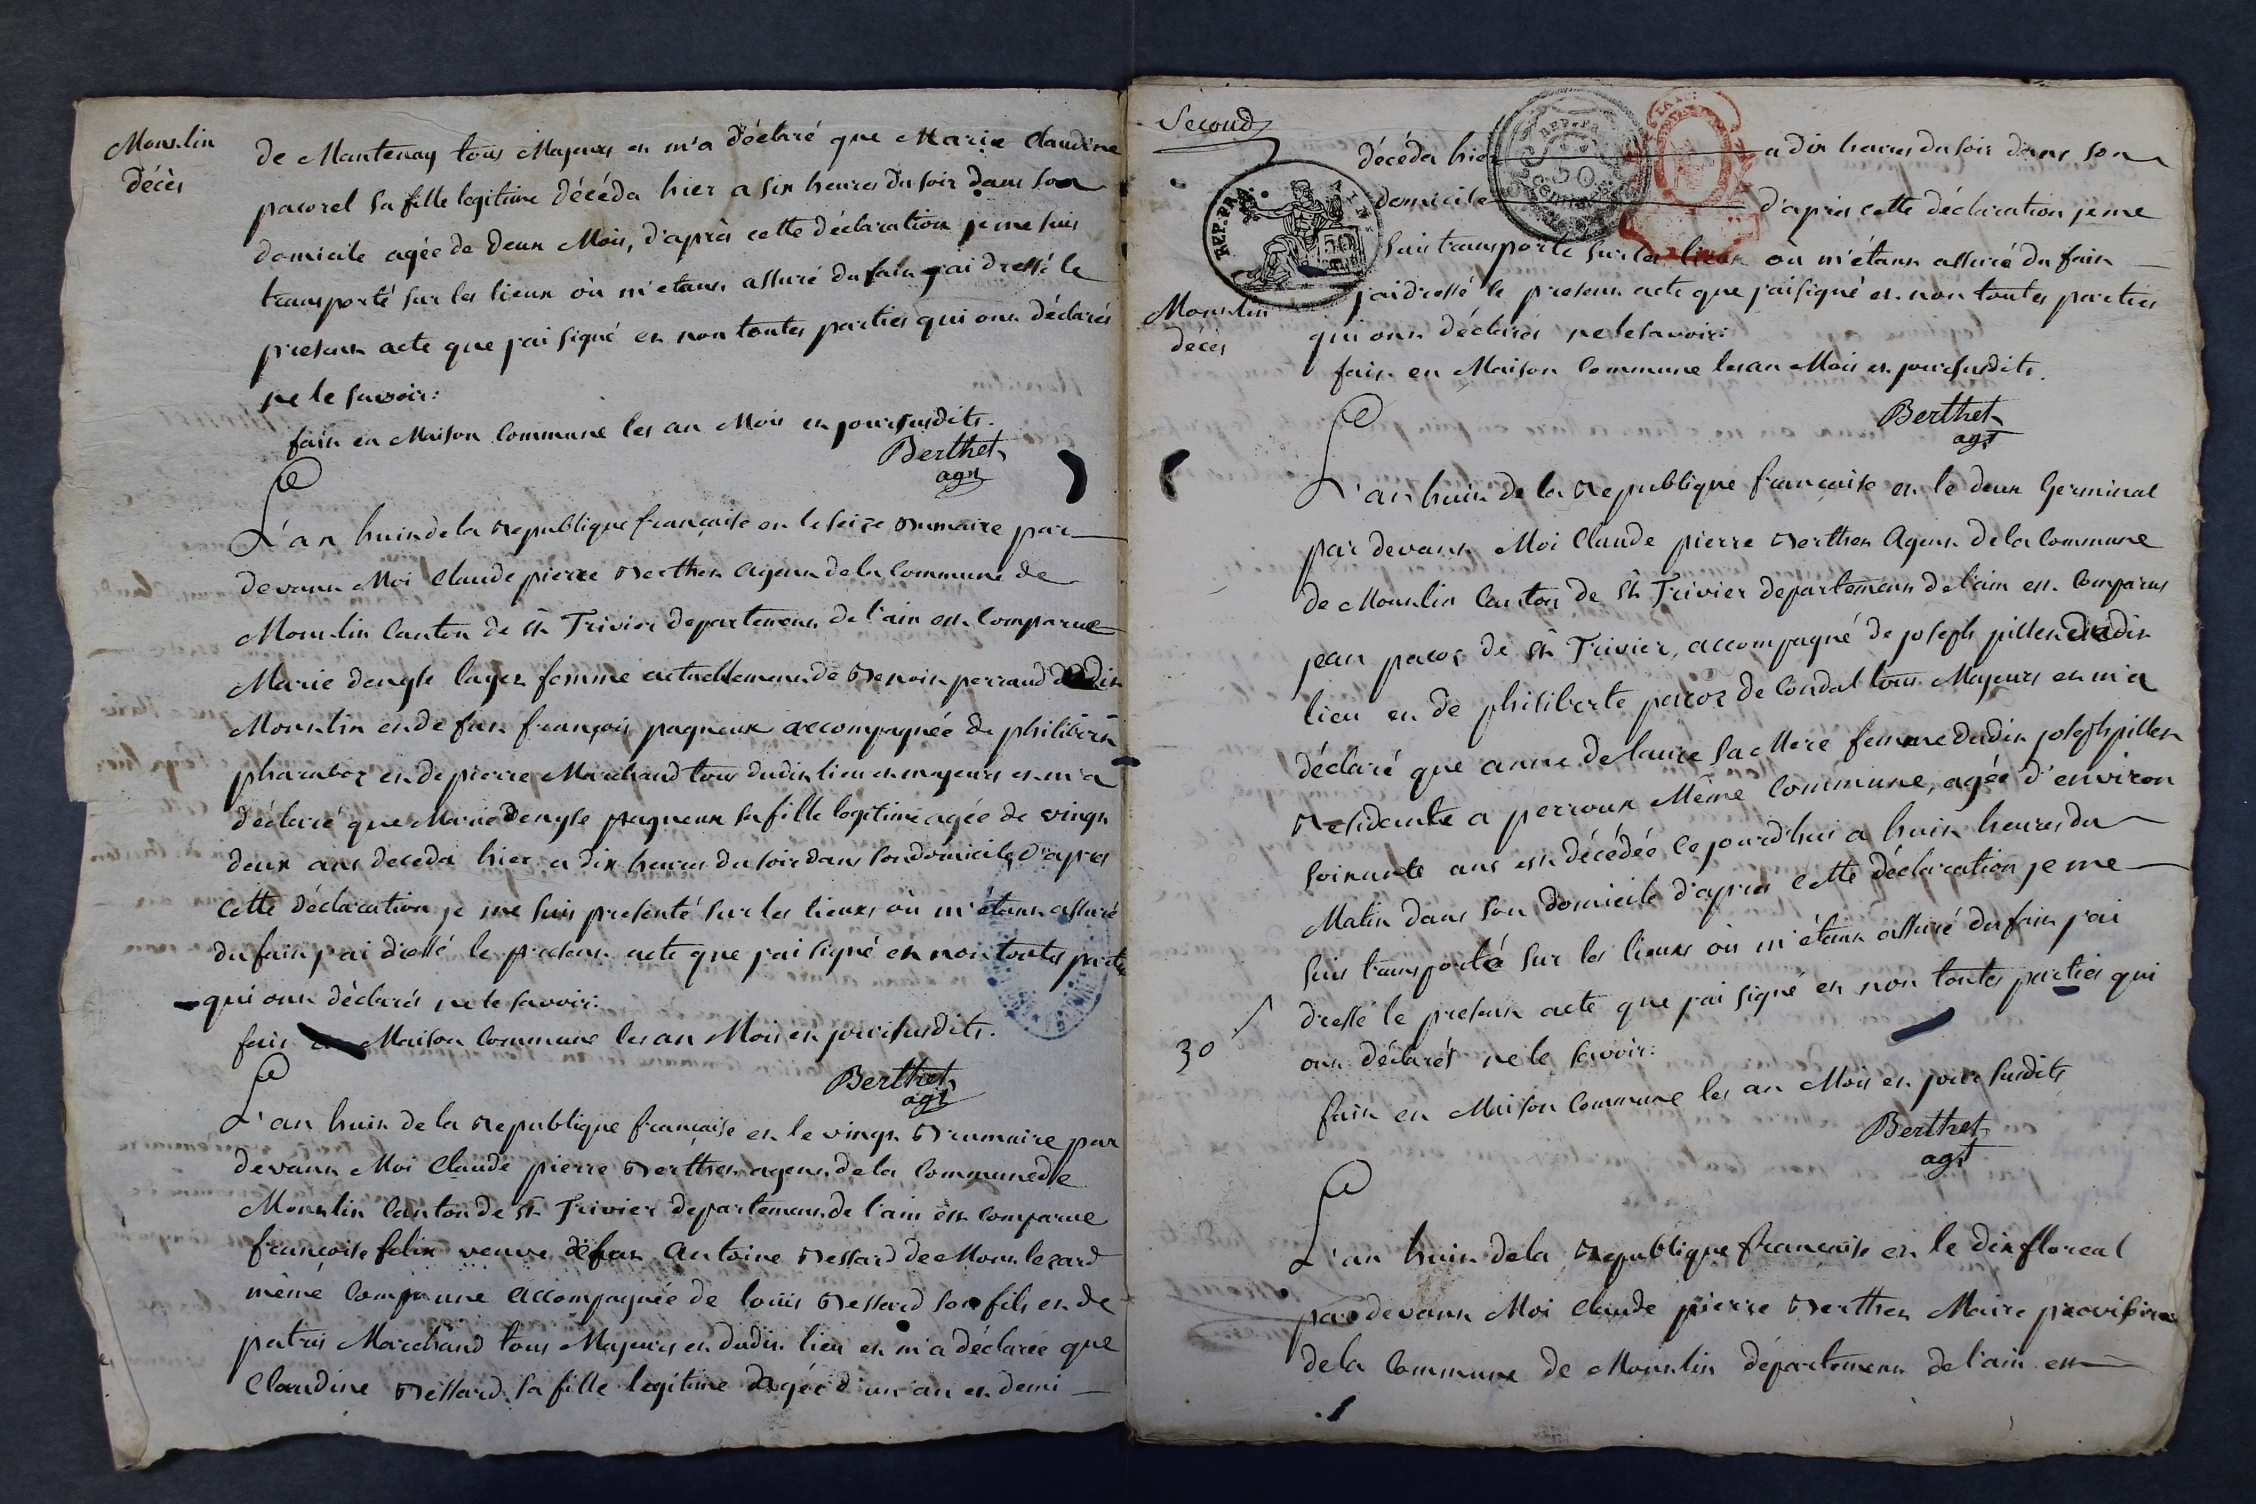 Mons.lin
décès
de Mantenay tous Majeurs et m'a déclaré que Marie Claudine
pacorel sa fille legitime décéda hier a six heures du soir dans son
domicile agée de deux Mois, d'après cette déclaration je me suis
transporté sur les lieux où m'etant assuré du fait j'ai dressé le
present acte que j'ai signé et non toutes parties qui ont déclarés
ne le savoir:
fait en Maison Commune les an Mois et jour susdits.
Berthet
agt
L'an huit de la Republique française et le seize Brumaire par
devant Moi Claude pierre Berthet Agent de la Commune de
Mons.lin Canton de St Trivier departement de l'ain est Comparue
Marie denyse layer femme actuellement de Benoit perraud dudit
Mons.lin et de fut françois pagneux accompagnée de philibert
pharaboz et de pierre Marchand tous dudit lieu et majeurs et m'a
déclaré que Marie Denyse pagneux sa fille legitime agée de vingt
deux ans deceda hier a dix heures du soir dans son domicile, D'apres
Cette déclaration je me suis presenté sur les lieux où m'étant assuré
du fait j'ai dressé le present acte que j'ai signé et non toutes parties
qui ont déclarés ne le savoir:
fait en Maison Commune les an Mois et jour susdits.
Berthet
agt
L'an huit de la Republique française et le vingt Brumaire par
devant Moi Claude pierre Berthet agent de la Commune de
Mons.lin Canton de St Trivier departement de l'ain est Comparue
françoise felix veuve de fut Antoine Bessard de Mons legard
même Commune accompagnée de louis Bessard son fils et de
patris Marchand tous Majeurs et dudit lieu et m'a déclarée que
Claudine Bessard sa fille legitime agée d'un an et demi
Second
décéda hier a dix heures du soir dans son
domicile d'apres cette déclaration je me
suis transporté sur les lieux où m'étant assuré du fait
REP.FRA.
Mons.lin
décès
j'ai dressé le present acte que j'ai signé et non toutes parties
qui ont déclarés ne le savoir:
fait en Maison Commune les an Mois et jour susdits.
Berthet
agt
L'an huit de la Republique française et le deux Germinal
par devant Moi Claude pierre Berthet Agent de la Commune
de Mons.lin Canton de St Trivier departement de l'ain est Comparus
jean pacoz de St Trivier, accompagné de joseph pillet dudit
lieu et de philiberte pacoz de Condal tous Majeurs et m'a
déclaré que anne delaure sa Mere femme dudit joseph pillet
Residante a perroux Même Commune, agée d'environ
soixante ans est décédée Ce jourd'hui a huit heures du
Matin dans son domicile d'apres cette déclaration je me
suis transporté sur les lieux où m'étant assuré du fait j'ai
dressé le present acte que j'ai signé et non toutes parties qui
30
ont déclarés ne le savoir:
fait en Maison Commune les an Mois et jour susdits
Berthet
agt
L'an huit de la Republique française et le dix floreal
par devant Moi Claude pierre Berthet Maire provisoire
de la Commune de Mons.lin département de l'ain est